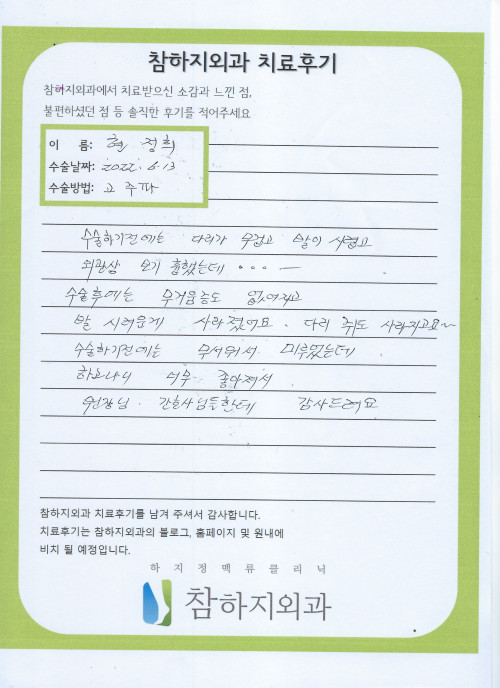 참하지외과 치료후기
참하지외과에서 치료받으신 소감과 느낀 점,
불편하셨던 점 등 솔직한 후기를 적어주세요
이 름: 현 정희
수술날짜: 2022. 6. 13
수술방법: 고주파
수술하기전에는 다리가 무겁고 발이 시렵고
외관상 보기 흉했는데 ...
수술후에는 무거움증도 없어지고
발 시려움게 사라졌어요. 다리 쥐도 사라지고요~
수술하기전에는 무서워서 미루었는데
하고나니 너무 좋아져서
원장님. 간호사님들한테 감사드려요
참하지외과 치료후기를 남겨 주셔서 감사합니다.
치료후기는 참하지외과의 블로그, 홈페이지 및 원내에
비치 될 예정입니다.
하지정맥류클리닉
참하지외과